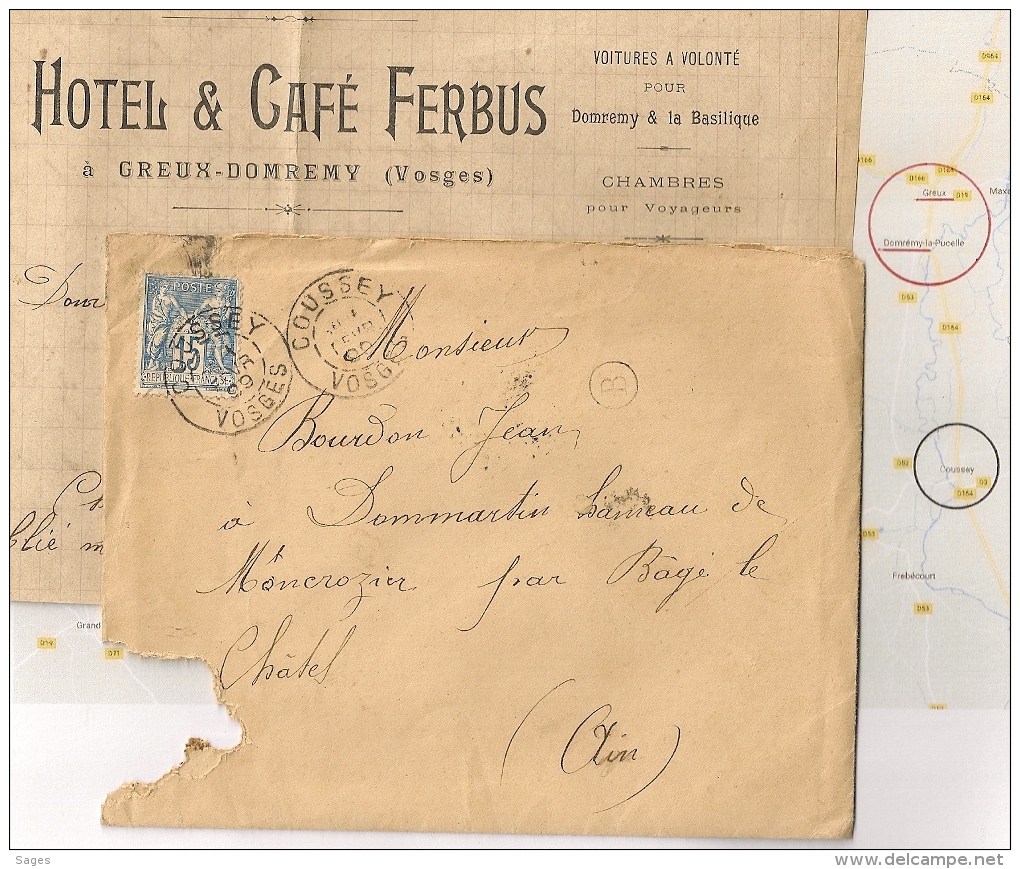 HOTEL & CAFÉ FERBUS
à GREUX-DOMREMY (Vosges)
VOITURES A VOLONTÉ
POUR
Domremy & la Basilique
CHAMBRES
pour Voyageurs
Dour
blié m
POSTES
15
REPUBLIQUE FRANÇAISE
COUSSEY
VOSGES
COUSSEY
VOSGES
B
Monsieur
Bourdon Jean
à Dommartin hameau de
Moncrozier par Bâgé le
Châtel
(Ain)
D164
D164
D166
D166
D164
Greux
D19
Maxe
Domrémy-la-Pucelle
D53
D164
D53
Coussey
D3
D164
D53
Frebécourt
D53
Grand
D19
D71
Sages
www.delcampe.net